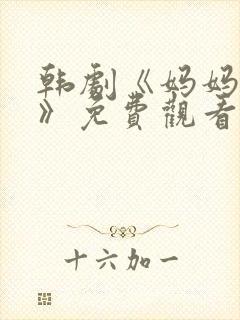 韩剧《妈妈
》免費觀看
十六加一